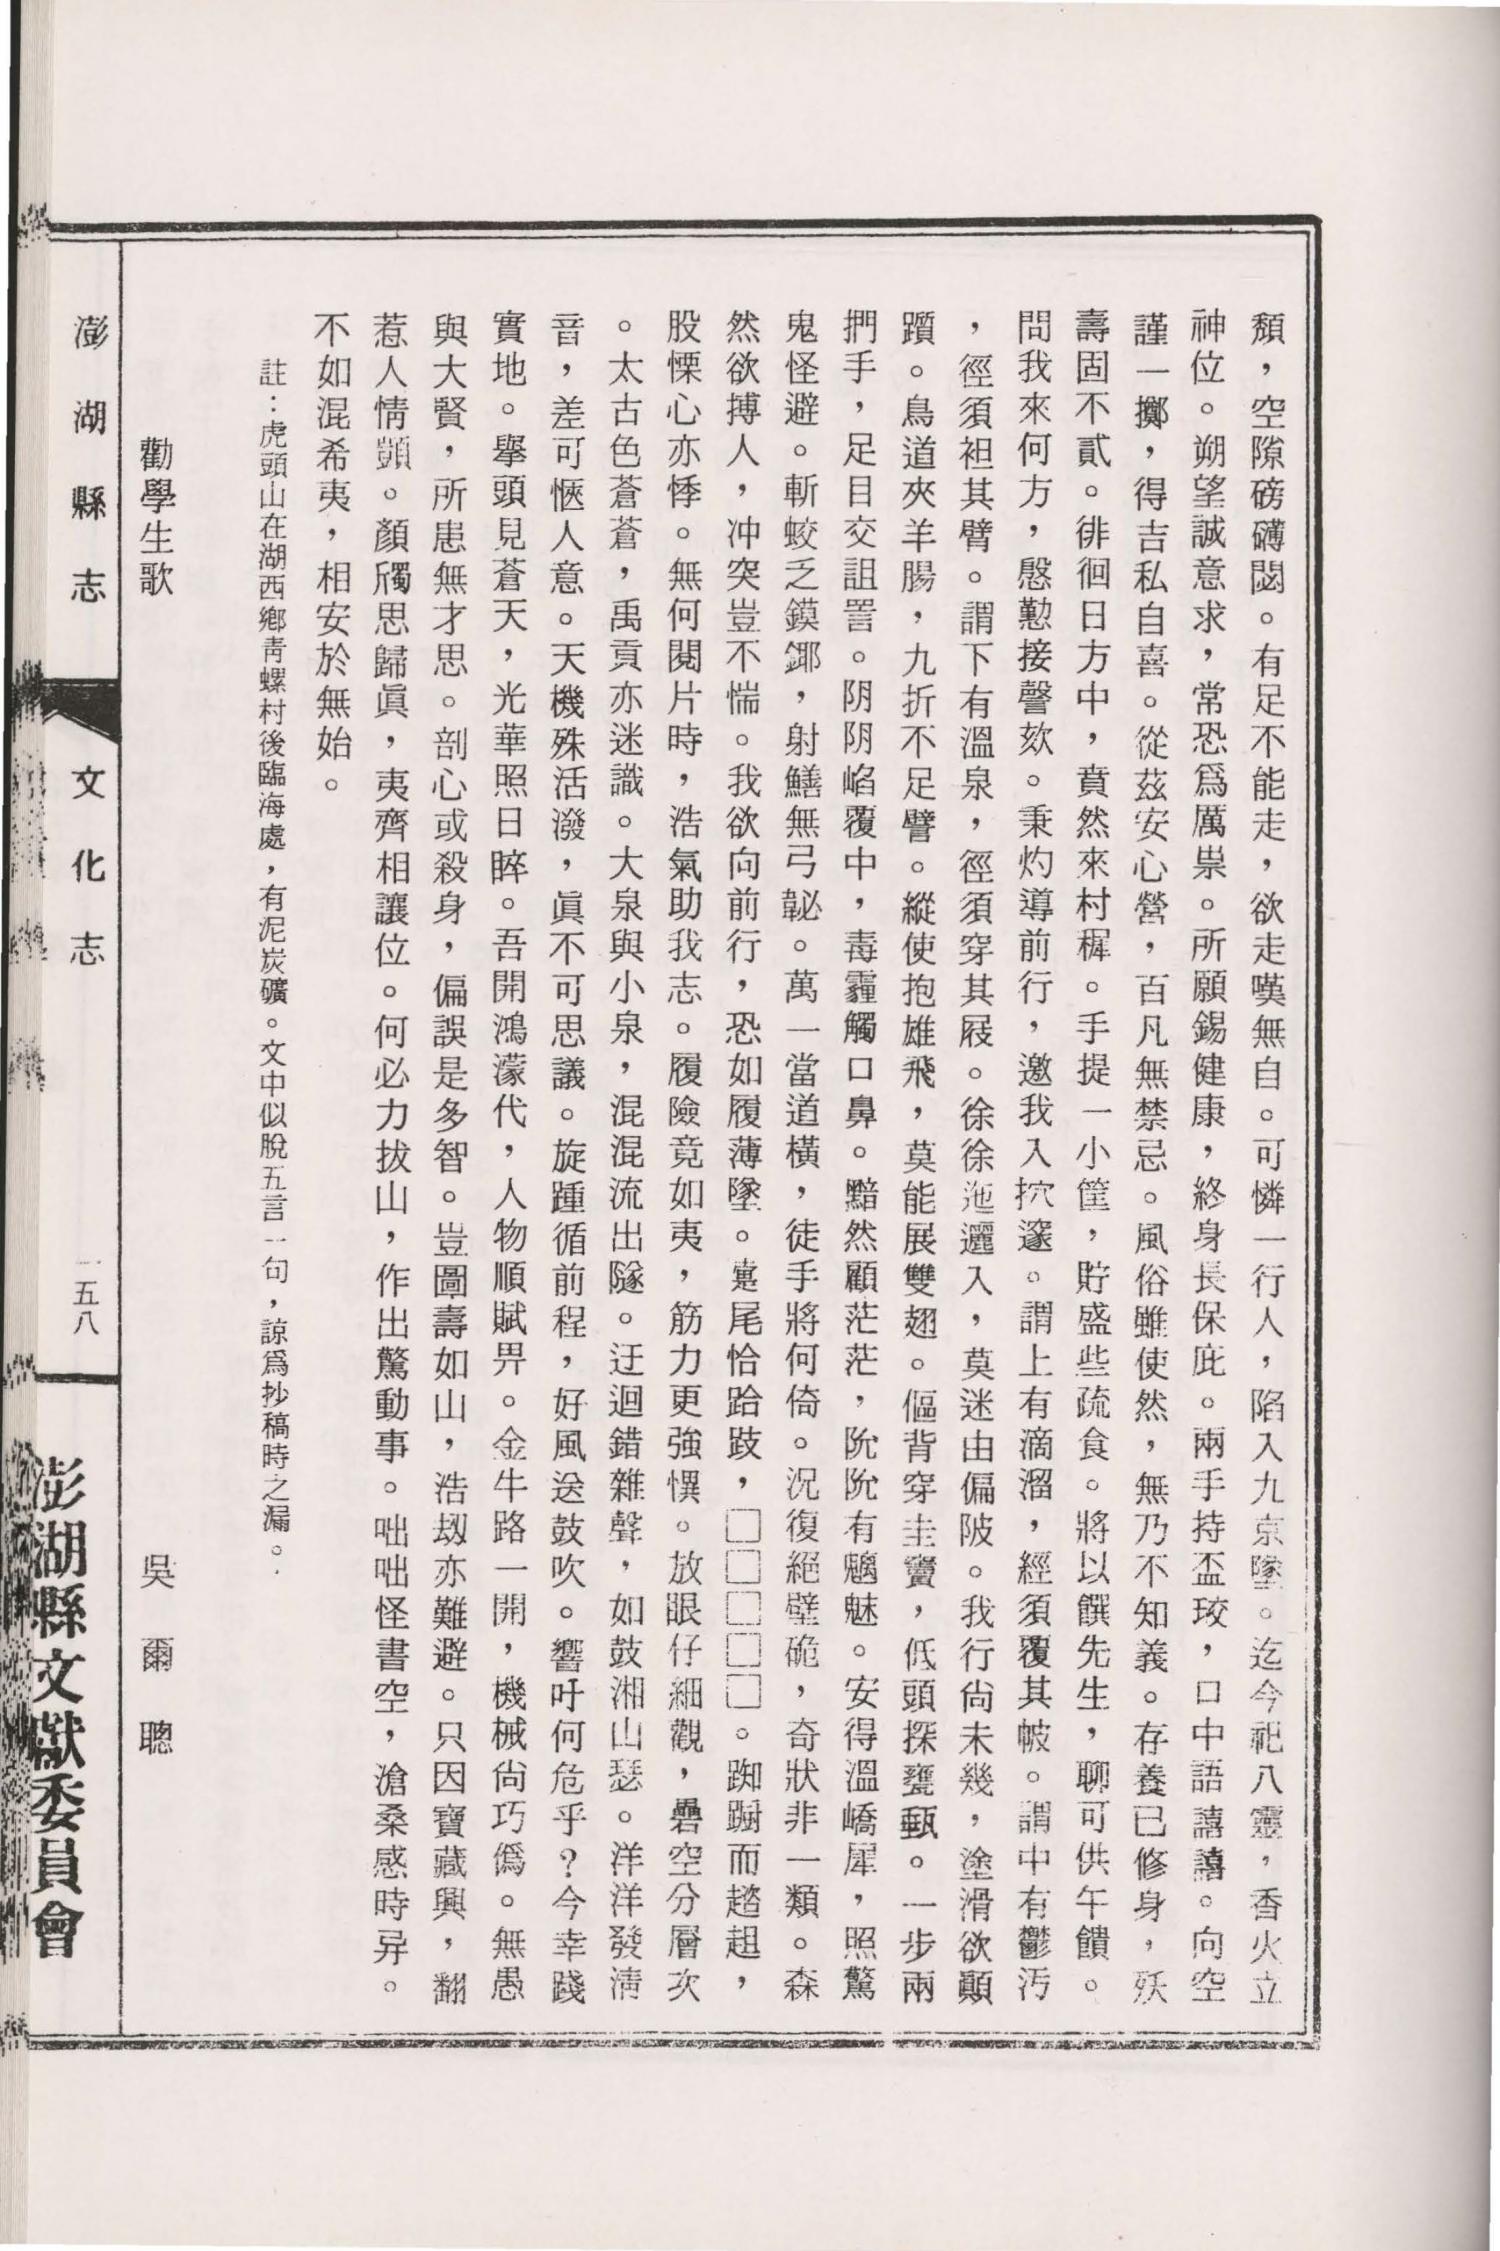 頹，空隙磅礴閟。有足不能走，欲走嘆無自。可憐一行人，陷入九京墜。迄今祀八靈，香火立
神位。朔望誠意求，常恐爲厲祟。所願錫健康，終身長保庇。兩手持盃珓，口中語譆譆。向空
謹一擲，得吉私自喜。從茲安心營，百凡無禁忌。風俗雖使然，無乃不知義。存養已修身，殀
壽固不貳。徘徊日方中，賁然來村穉。手提一小筐，貯盛些疏食。將以饌先生，聊可供午饋。
問我來何方，慇懃接謦欬。秉灼導前行，邀我入坹邃。謂上有滴溜，經須覆其帔。謂中有鬱汚
，徑須袒其臂。謂下有溫泉，徑須穿其屐。徐徐迤邐入，莫迷由偏陂。我行尙未幾，塗滑欲顚
躓。鳥道夾羊腸，九折不足譬。縱使抱雄飛，莫能展雙翅。傴背穿圭竇，低頭探甕甀。一步兩
捫手，足目交詛詈。阴阴㟃覆中，毒霾觸口鼻。黯然顧茫茫，阭阭有魑魅。安得溫嶠犀，照驚
鬼怪避。斬蛟乏鏌鎁，射鱔無弓韍。萬一當道橫，徒手將何倚。況復絕壁硊，奇狀非一類。森
然欲搏人，冲突豈不惴。我欲向前行，恐如履薄墜。躉尾恰跲跂，□□□□□。踟躕而趦趄，
股慄心亦悸。無何閱片時，浩氣助我志。履險竟如夷，筋力更強愪。放眼仔細觀，礨空分層次
。太古色蒼蒼，禹貢亦迷識。大泉與小泉，混混流出隧。迂迴錯雜聲，如鼓湘山瑟。洋洋發淸
音，差可愜人意。天機殊活潑，眞不可思議。旋踵循前程，好風送鼓吹。響吁何危乎？今幸踐
實地。舉頭見蒼天，光華照日睟。吾開鴻濛代，人物順賦畀。金牛路一開，機械尙巧僞。無愚
與大賢，所患無才思。剖心或殺身，偏誤是多智。豈圖壽如山，浩刼亦難避。只因寶藏興，翻
惹人情顗。顏斶思歸眞，夷齊相讓位。何必力拔山，作出驚動事。咄咄怪書空，滄桑感時异。
不如混希夷，相安於無始。
註：虎頭山在湖西鄕靑螺村後臨海處，有泥炭礦。文中似脫五言一句，諒爲抄稿時之漏。
勸學生歌　吳爾聰
澎湖縣志　文化志　一五八　澎湖縣文獻委員會